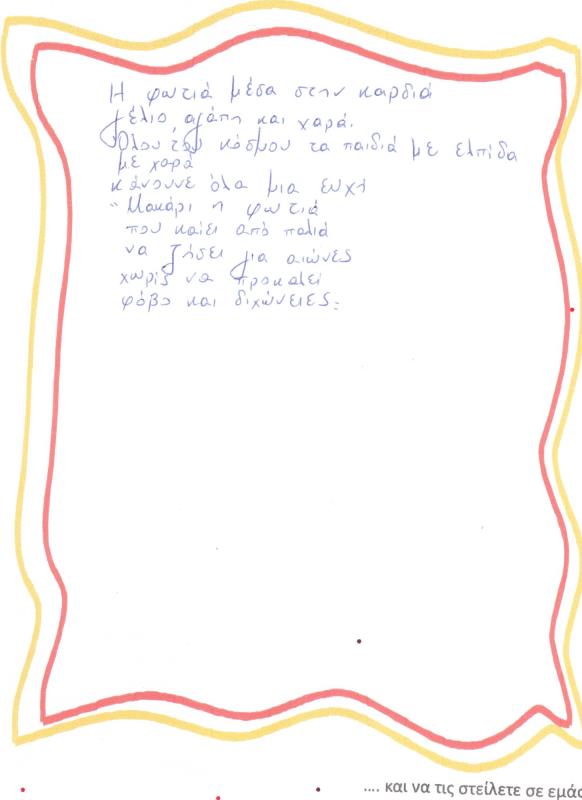 Η φωτιά μέσα στην καρδιά
γέλιο, αγάπη και χαρά.
Όλου του κόσμου τα παιδιά με ελπίδα
με χαρά
κάνουνε όλα μια ευχή
"Μακάρι η φωτιά
που καίει από παλιά
να ζήσει για αιώνες
χωρίς να προκαλεί
φόβο και διχώνειες.
.... και να τις στείλετε σε εμάς